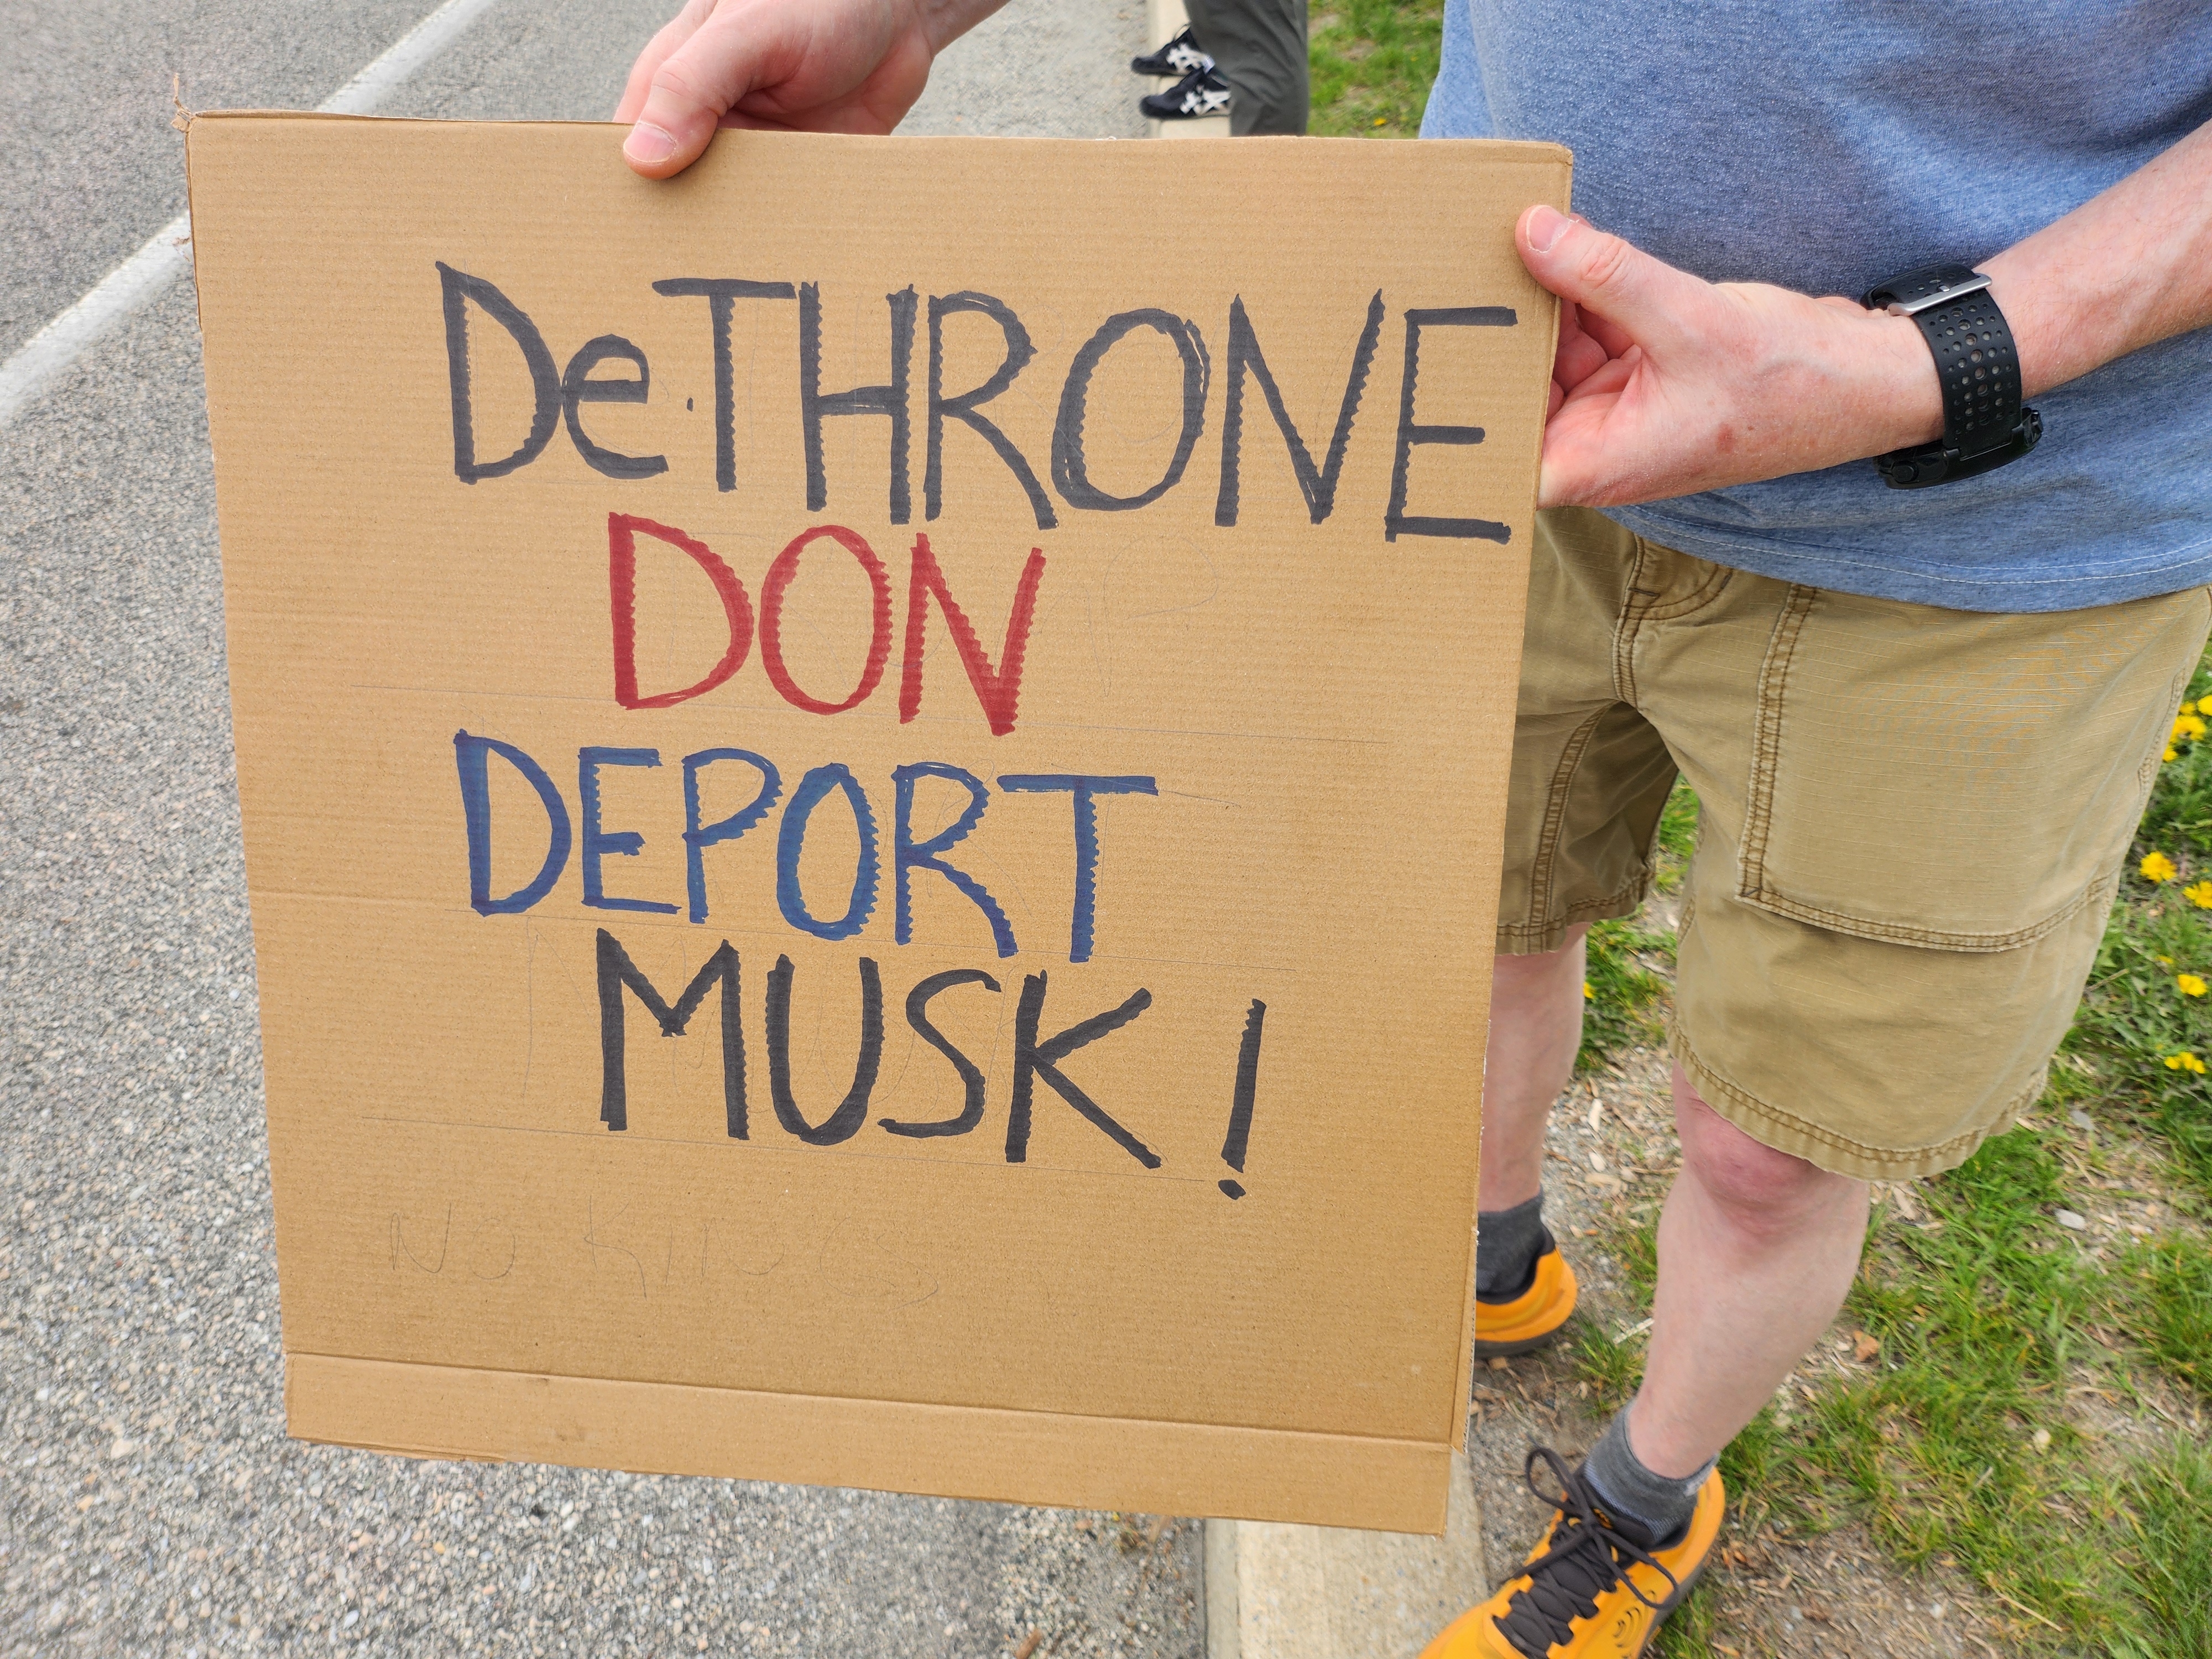 De·THRONE
DON
DEPORT
MUSK!
No KINGS